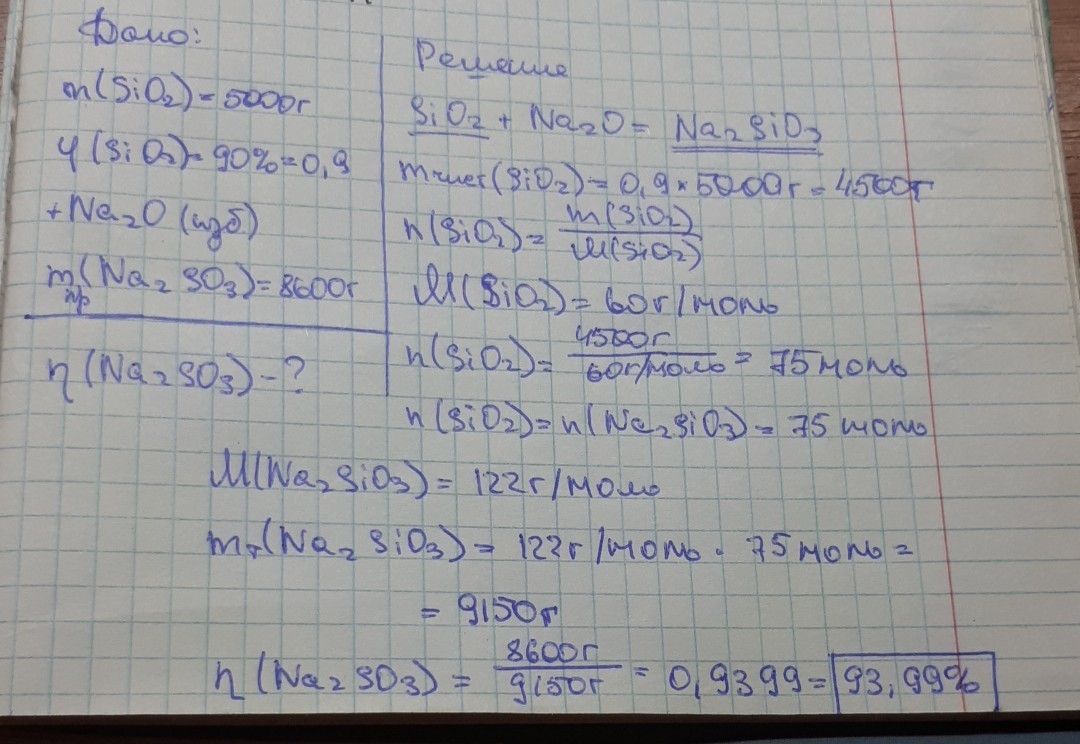 Дано:
m(SiO₂)=5000г
φ(SiO₂)=90%=0,9
+Na₂O (изб)
mпр(Na₂SO₃)=8600г
η(Na₂SO₃)-?
Решение
SiO₂ + Na₂O = Na₂SiO₃
mчист(SiO₂)=0,9×5000г=4500г
n(SiO₂)= m(SiO₂)/M(SiO₂)
M(SiO₂)=60г/моль
n(SiO₂)= 4500г/60г/моль = 75моль
n(SiO₂)=n(Na₂SiO₃)=75 моль
M(Na₂SiO₃)=122г/моль
mт(Na₂SiO₃)= 122г/моль · 75моль=
= 9150г
η(Na₂SO₃)= 8600г/9150г = 0,9399=93,99%